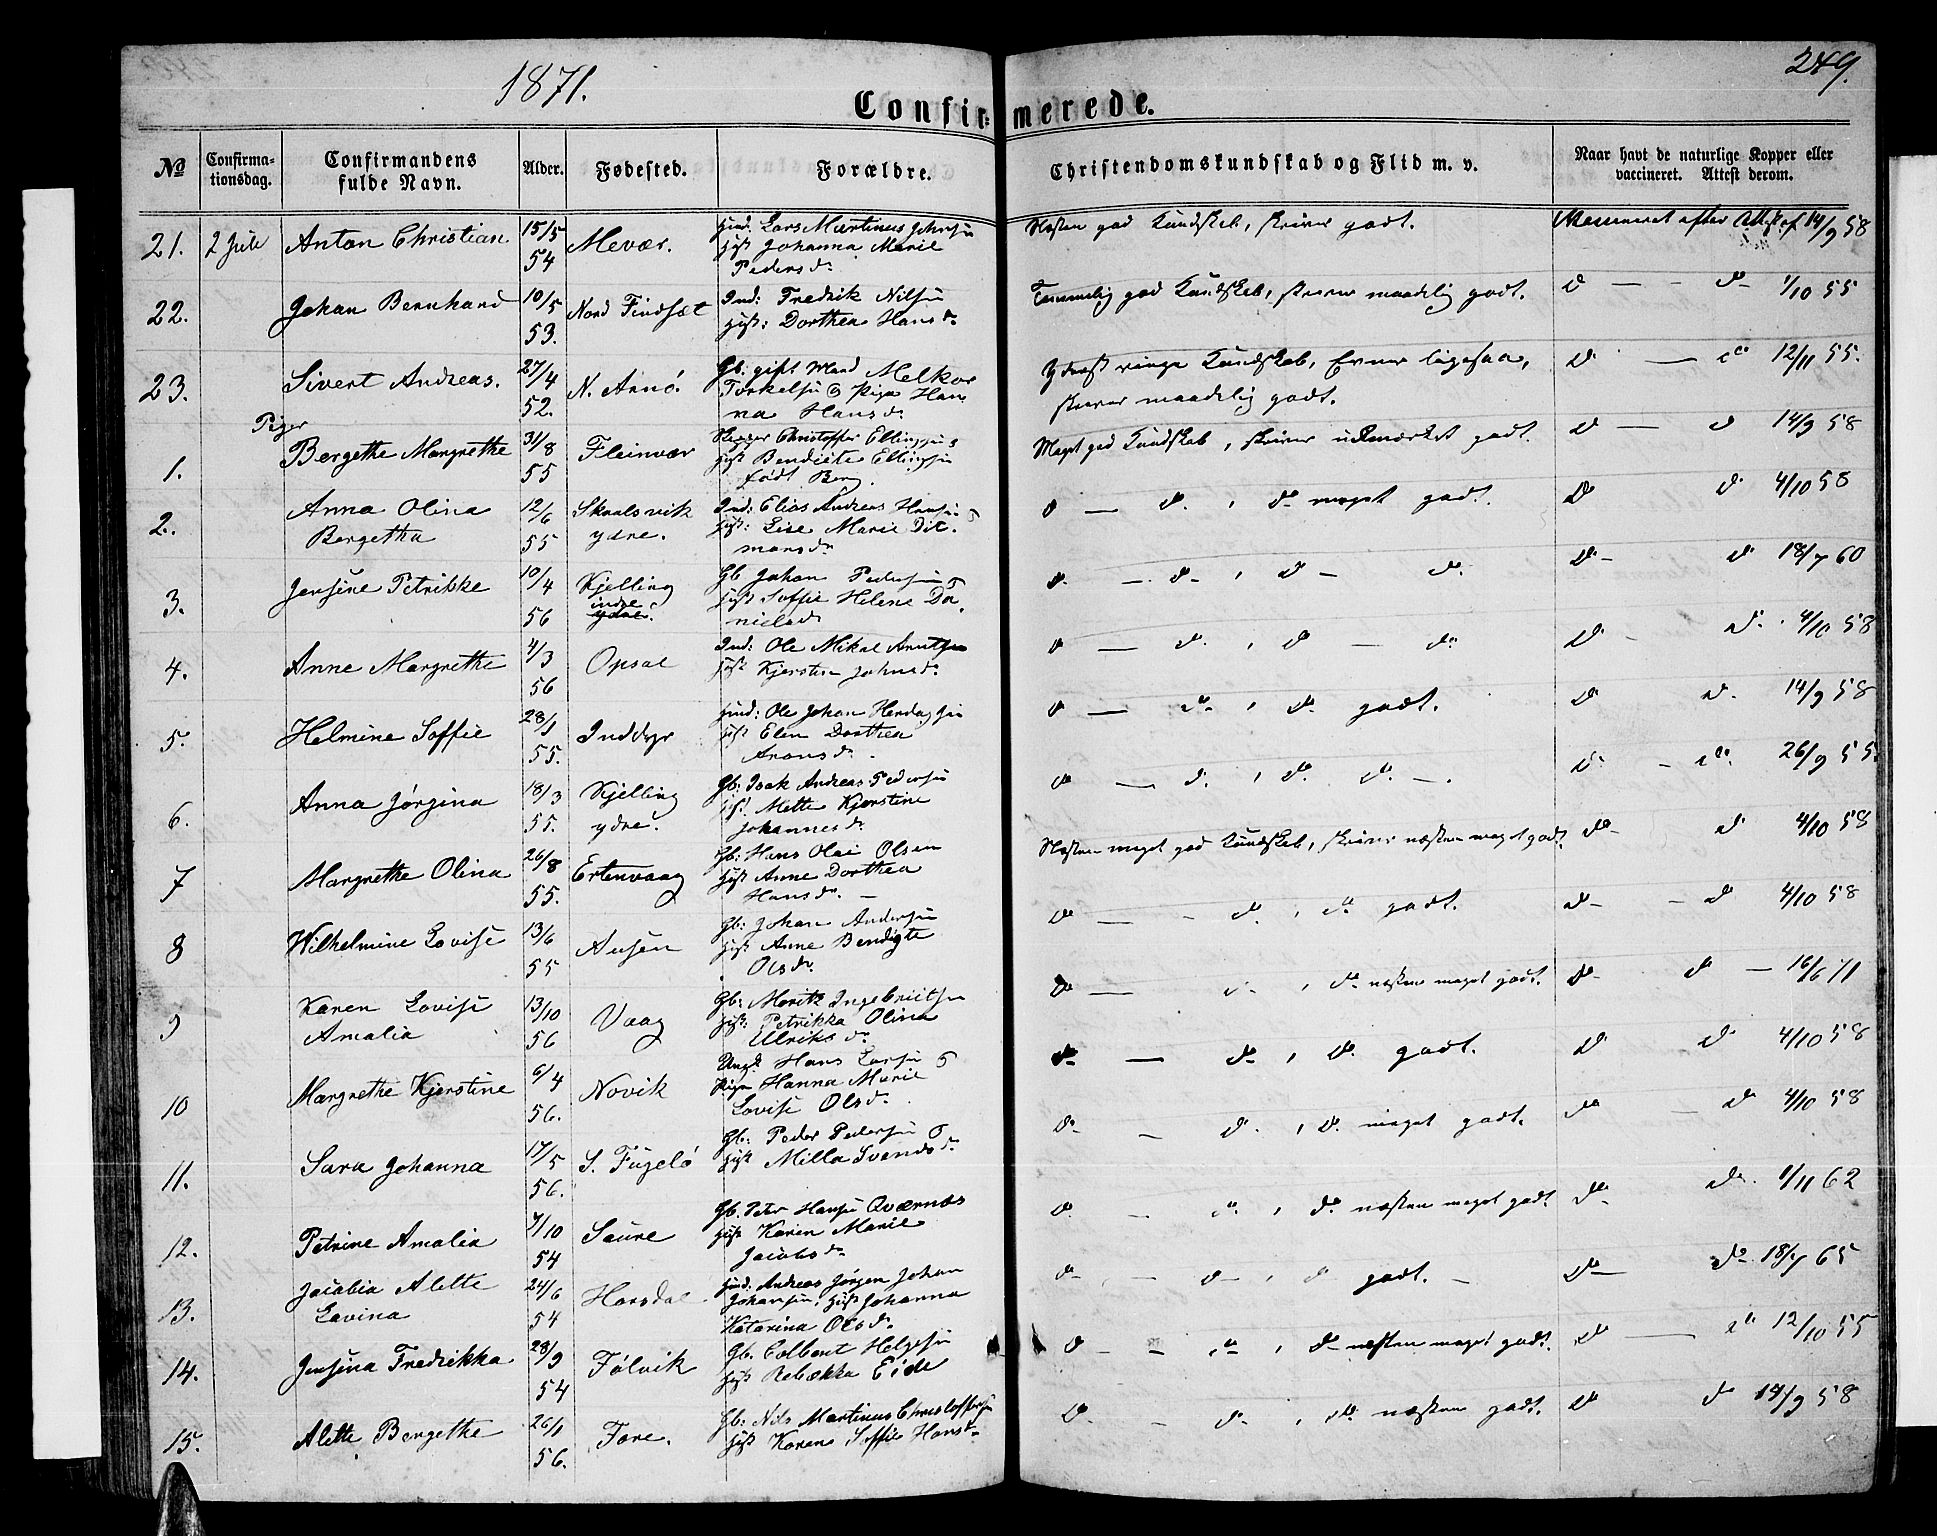 1871.
249.
Confirmerede.
№
Confirma-
tionsdag.
Confirmandens
fulde Navn.
Alder.
Fødested.
Forældre.
Christendomskundskab og Flid m. v.
Naar havt de naturlige Kopper eller
vaccineret. Attest derom.
21. 2 Juli Anton Christian 15/5 54 Mevær.
Lars Martinus
Johanna Marie
Pedersdr.
Næsten god Kundskab, skriver godt.
Vaccineret efter Attest af 14/9 58
22. Johan Bernhard 10/5 53. Nord Findset
Ind: Fredrik Nilsen
Hust: Dorthea Hansdr.
Temmelig god Kundskab, skriver maadelig godt.
do — do 1/10 55
23. Sivert Andreas. 27/4 52. N. Arnö.
Gb: gift Mand Melkor
Torkelsen & Pige Han
na Hansdr.
Yderst ringe Kundskab, Evner ligesaa,
skriver maadelig godt.
do — do 12/11 55.
Piger
1. Bergethe Margrethe 31/8 55 Fleinvær
Christoffer Ellingsen
Hust Bendicte Ellingsen
født Berg.
Meget god Kundskab, skriver udmærket godt.
do — do 14/9 58
2. Anna Olina
Bergetha 12/6 55 Skaalsvik
ydre.
Ind: Elias Andreas Hansen
Hust: Lise Marie Dit-
marsdr
do — do, do meget godt.
do do 4/10 58
3. Jensine Petrikke 10/4 56 Kjelling
indre
ydre.
Gb Johan Pedersen
Hust Soffie Helene Da
nielsdr
do — do, do — do.
do do 18/7 60
4. Anne Margrethe 4/3 56 Opsal
Ind: Ole Mikal Arntsen
Hust Kjersten Johnsdr.
do — do, do — do
do do. 4/10 58
5. Helmine Soffie 28/1 55. Inddyr
Ole Johan
Hust Elen Dorthea
Aronsdr.
do — do, do godt.
do do. 14/9 58
6. Anna Jørgina 18/3 55. Kjelling
ydre.
Gb: Isak Andreas Pedersen
Hust Mette Kjerstine
Johannesdr.
do — do, do do —.
do — do. 26/9 55.
7 Margrethe Olina 26/8 55. Ertenvaag
Gb: Hans Olai Olsen
Hust Anne Dorthea
Hansdr. —
Næsten meget god Kundskab, skriver næsten meget godt.
do do 4/10 58
8 Wilhelmine Lovise 13/6 55 Ausen
Gb: Johan Andersen
Hust Anne Bendigte
Olsdr.
do — do, do godt.
do — do 4/10 58
9 Karen Lovise
Amalia 13/10 56 Vaag
Gb: Moritz Ingebrigtsen
Hust: Petrikka Olina
Ulriksdr.
do — do, do næsten meget godt.
do do — 16/6 71
10 Margrethe Kjerstine 6/4 56. Novik
Ungk. Hans Larsen
Pige Hanna Marie
Lovise Olsdr.
do — do, do godt.
do do 4/10 58
11. Sara Johanna 17/5 56. S. Fugelö
Gb: Peder Pedersen
Hust Milla Svendsdr.
do — do, do meget godt.
do — do 4/10 58
12. Petrine Amalia 7/10 54 Saure
Gb. Peter Hansen Qværnæs
Hust Karen Marie
Jacobsdr
do — do, do næsten meget godt.
do do. 1/11 62
13. Jacobia Alette
Lavina 24/6 54 Horsdal
Andreas Jørgen Johan
Johansen, Hust Johanna
Katarina Olsdr.
do — do, do godt. —
do — do 18/7 65
14. Jensina Fredrikka 28/9 54 Følvik
Gb. Colbent Helgesen
Hust Rebekka Eide
do — do, do næsten meget godt.
do — do 12/10 55
15. Alette Bergethe 26/1 56. Fore.
Gb: Nils Martinus Christoffersen
Hust Karen Soffie Hansdr
do — do, do næsten godt.
do do 14/9 58